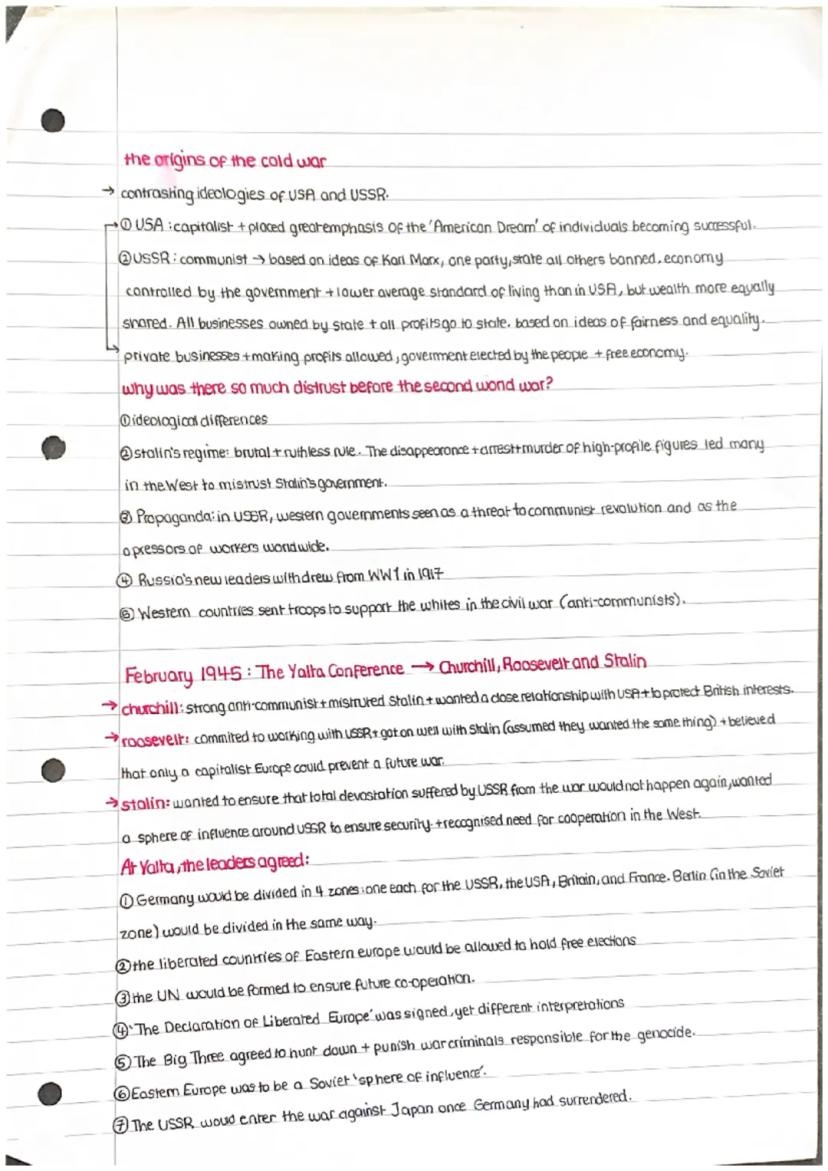 the origins of the cold war
→ contrasting ideologies of USA and USSR.
① USA : capitalist + placed great emphasis of the 'American Dream' of individuals becoming successful.
② USSR : communist → based on ideas of Karl Marx, one party, state all others banned, economy
controlled by the government + lower average standard of living than in USA, but wealth more equally
shared. All businesses owned by state + all profits go to state. based on ideas of fairness and equality.
private businesses + making profits allowed, government elected by the people + free economy.
why was there so much distrust before the second world war?
① ideological differences
② stalin's regime: brutal + ruthless rule. The disappearance + arrest + murder of high-profile figures led many
in the West to mistrust Stalin's government.
③ Propaganda: in USSR, western governments seen as a threat to communist revolution and as the
opressors of workers worldwide.
④ Russia's new leaders withdrew from WW1 in 1917
⑤ Western countries sent troops to support the whites in the civil war (anti-communists).
February 1945 : The Yalta Conference → Churchill, Roosevelt and Stalin
→ churchill: strong anti-communist + mistruted Stalin + wanted a close relationship with USA + to protect British interests.
→ roosevelt: commited to working with USSR + got on well with Stalin (assumed they wanted the same thing) + believed
that only a capitalist Europe could prevent a future war.
→ stalin: wanted to ensure that total devastation suffered by USSR from the war would not happen again, wanted
a sphere of influence around USSR to ensure security. + recognised need for cooperation in the West.
At Yalta, the leaders agreed:
① Germany would be divided in 4 zones: one each for the USSR, the USA, Britain, and France. Berlin (in the Soviet
zone) would be divided in the same way.
② the liberated countries of Eastern europe would be allowed to hold free elections
③ the UN would be formed to ensure future co-operation.
④ 'The Declaration of Liberated Europe' was signed, yet different interpretations
⑤ The Big Three agreed to hunt down + punish war criminals responsible for the genocide.
⑥ Eastern Europe was to be a Soviet 'sphere of influence'.
⑦ The USSR woud enter the war against Japan once Germany had surrendered.